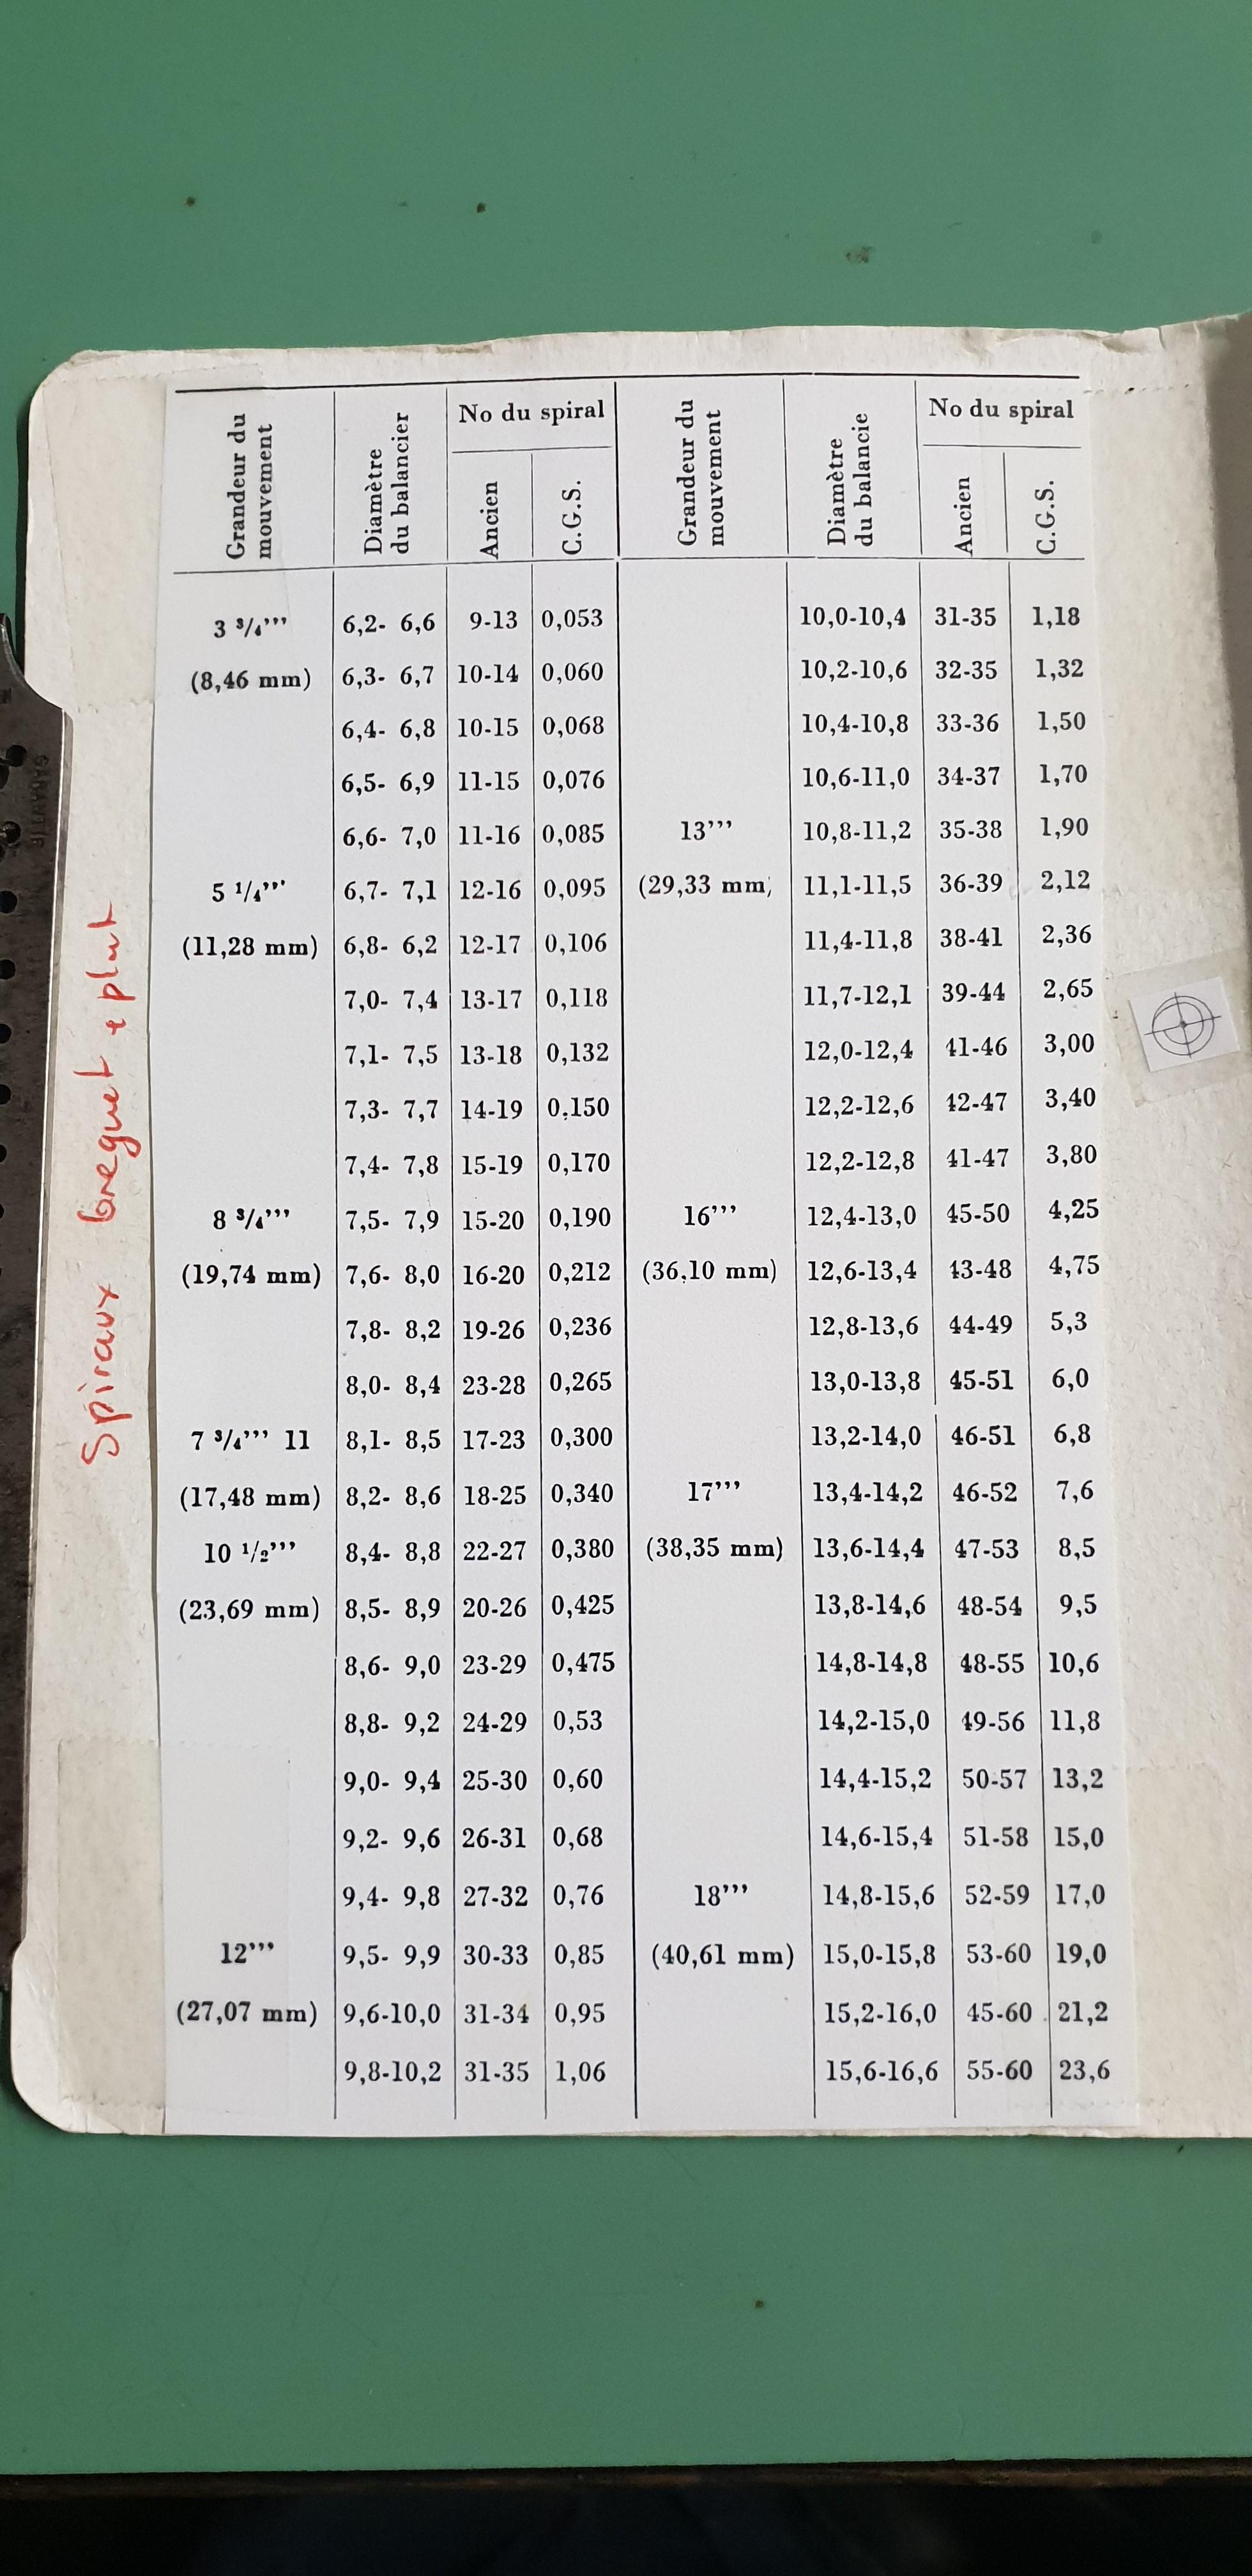 Spiraux breguet + plat
Grandeur du mouvement | Diamètre du balancier | No du spiral | Grandeur du mouvement | Diamètre du balancie | No du spiral
Ancien | C.G.S. | Ancien | C.G.S.
3 ³/₄’’’ | 6,2- 6,6 | 9-13 | 0,053 | | 10,0-10,4 | 31-35 | 1,18
(8,46 mm) | 6,3- 6,7 | 10-14 | 0,060 | | 10,2-10,6 | 32-35 | 1,32
| 6,4- 6,8 | 10-15 | 0,068 | | 10,4-10,8 | 33-36 | 1,50
| 6,5- 6,9 | 11-15 | 0,076 | | 10,6-11,0 | 34-37 | 1,70
| 6,6- 7,0 | 11-16 | 0,085 | 13’’’ | 10,8-11,2 | 35-38 | 1,90
5 ¹/₄’’’ | 6,7- 7,1 | 12-16 | 0,095 | (29,33 mm) | 11,1-11,5 | 36-39 | 2,12
(11,28 mm) | 6,8- 6,2 | 12-17 | 0,106 | | 11,4-11,8 | 38-41 | 2,36
| 7,0- 7,4 | 13-17 | 0,118 | | 11,7-12,1 | 39-44 | 2,65
| 7,1- 7,5 | 13-18 | 0,132 | | 12,0-12,4 | 41-46 | 3,00
| 7,3- 7,7 | 14-19 | 0.150 | | 12,2-12,6 | 42-47 | 3,40
| 7,4- 7,8 | 15-19 | 0,170 | | 12,2-12,8 | 41-47 | 3,80
8 ³/₄’’’ | 7,5- 7,9 | 15-20 | 0,190 | 16’’’ | 12,4-13,0 | 45-50 | 4,25
(19,74 mm) | 7,6- 8,0 | 16-20 | 0,212 | (36,10 mm) | 12,6-13,4 | 43-48 | 4,75
| 7,8- 8,2 | 19-26 | 0,236 | | 12,8-13,6 | 44-49 | 5,3
| 8,0- 8,4 | 23-28 | 0,265 | | 13,0-13,8 | 45-51 | 6,0
7 ³/₄’’’ 11 | 8,1- 8,5 | 17-23 | 0,300 | | 13,2-14,0 | 46-51 | 6,8
(17,48 mm) | 8,2- 8,6 | 18-25 | 0,340 | 17’’’ | 13,4-14,2 | 46-52 | 7,6
10 ¹/₂’’’ | 8,4- 8,8 | 22-27 | 0,380 | (38,35 mm) | 13,6-14,4 | 47-53 | 8,5
(23,69 mm) | 8,5- 8,9 | 20-26 | 0,425 | | 13,8-14,6 | 48-54 | 9,5
| 8,6- 9,0 | 23-29 | 0,475 | | 14,8-14,8 | 48-55 | 10,6
| 8,8- 9,2 | 24-29 | 0,53 | | 14,2-15,0 | 49-56 | 11,8
| 9,0- 9,4 | 25-30 | 0,60 | | 14,4-15,2 | 50-57 | 13,2
| 9,2- 9,6 | 26-31 | 0,68 | | 14,6-15,4 | 51-58 | 15,0
| 9,4- 9,8 | 27-32 | 0,76 | 18’’’ | 14,8-15,6 | 52-59 | 17,0
12’’’ | 9,5- 9,9 | 30-33 | 0,85 | (40,61 mm) | 15,0-15,8 | 53-60 | 19,0
(27,07 mm) | 9,6-10,0 | 31-34 | 0,95 | | 15,2-16,0 | 45-60 | 21,2
| 9,8-10,2 | 31-35 | 1,06 | | 15,6-16,6 | 55-60 | 23,6